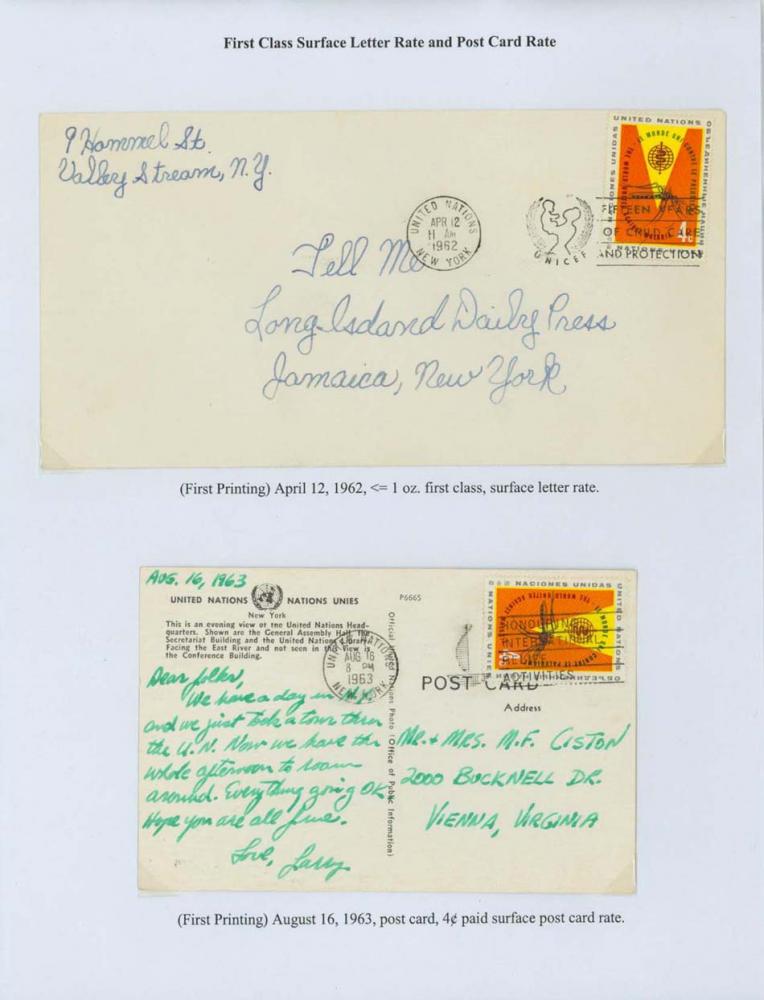 First Class Surface Letter Rate and Post Card Rate
9 Hammel St.
Valley Stream, N.Y.
UNITED NATIONS
NEW YORK
APR 12
11 AM
1962
UNICEF
FIFTEEN YEARS
OF CHILD CARE
AND PROTECTION
UNITED NATIONS
4c
Tell Me
Long Island Daily Press
Jamaica, New York
(First Printing) April 12, 1962, <= 1 oz. first class, surface letter rate.
AUG. 16, 1963
UNITED NATIONS NATIONS UNIES
New York
This is an evening view of the United Nations Head-
quarters. Shown are the General Assembly Hall, the
Secretariat Building and the United Nations Library
Facing the East River and not seen in this view is
the Conference Building.
P6665
Official United Nations Photo (Office of Public Information)
UNITED NATIONS
NEW YORK
AUG 16
8 PM
1963
HONOURING
INTERNATIONAL
RELIEF
ACTIVITIES
NACIONES UNIDAS
POST CARD
Address
Dear folks,
We have a day in N.Y.
and we just took a tour thru
the U.N. Now we have the
whole afternoon to roam
around. Everything going OK.
Hope you are all fine.
Love, Larry
MR. + MRS. M.F. CISTON
2000 BUCKNELL DR.
VIENNA, VIRGINIA
(First Printing) August 16, 1963, post card, 4¢ paid surface post card rate.